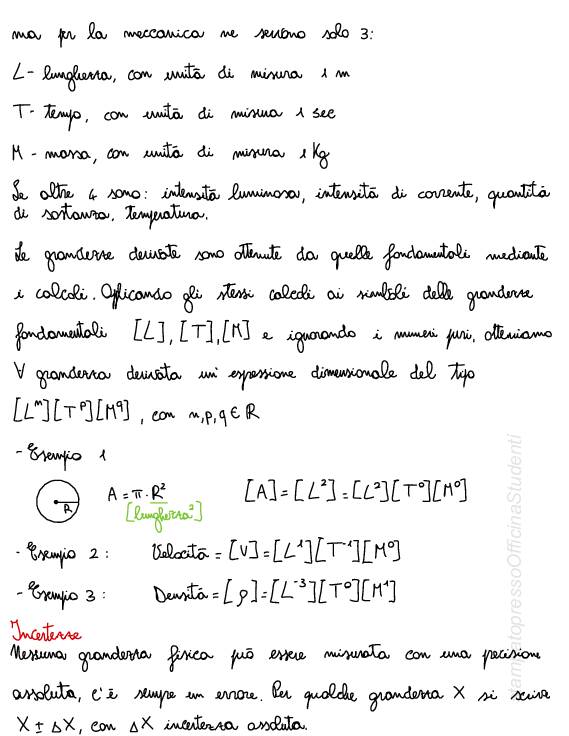 ma per la meccanica ne servono solo 3:
L - lunghezza, con unità di misura 1 m
T - tempo, con unità di misura 1 sec
M - massa, con unità di misura 1 Kg
Le altre 4 sono: intensità luminosa, intensità di corrente, quantità
di sostanza, temperatura.
Le grandezze derivate sono ottenute da quelle fondamentali mediante
i calcoli. Applicando gli stessi calcoli ai simboli delle grandezze
fondamentali [L], [T], [M] e ignorando i numeri puri, otteniamo
∀ grandezza derivata un' espressione dimensionale del tipo
[Lⁿ][Tᵖ][M^q], con n,p,q ∈ ℝ
- Esempio 1
R A = π · R² [A] = [L²] = [L²][T⁰][M⁰]
[lunghezza²]
- Esempio 2: Velocità = [V] = [L¹][T⁻¹][M⁰]
- Esempio 3: Densità = [ρ] = [L⁻³][T⁰][M¹]
Incertezze
Nessuna grandezza fisica può essere misurata con una precisione
assoluta, c'è sempre un errore. Per qualche grandezza X si scrive
X ± ΔX, con ΔX incertezza assoluta.
StampatopressoOfficinaStudenti